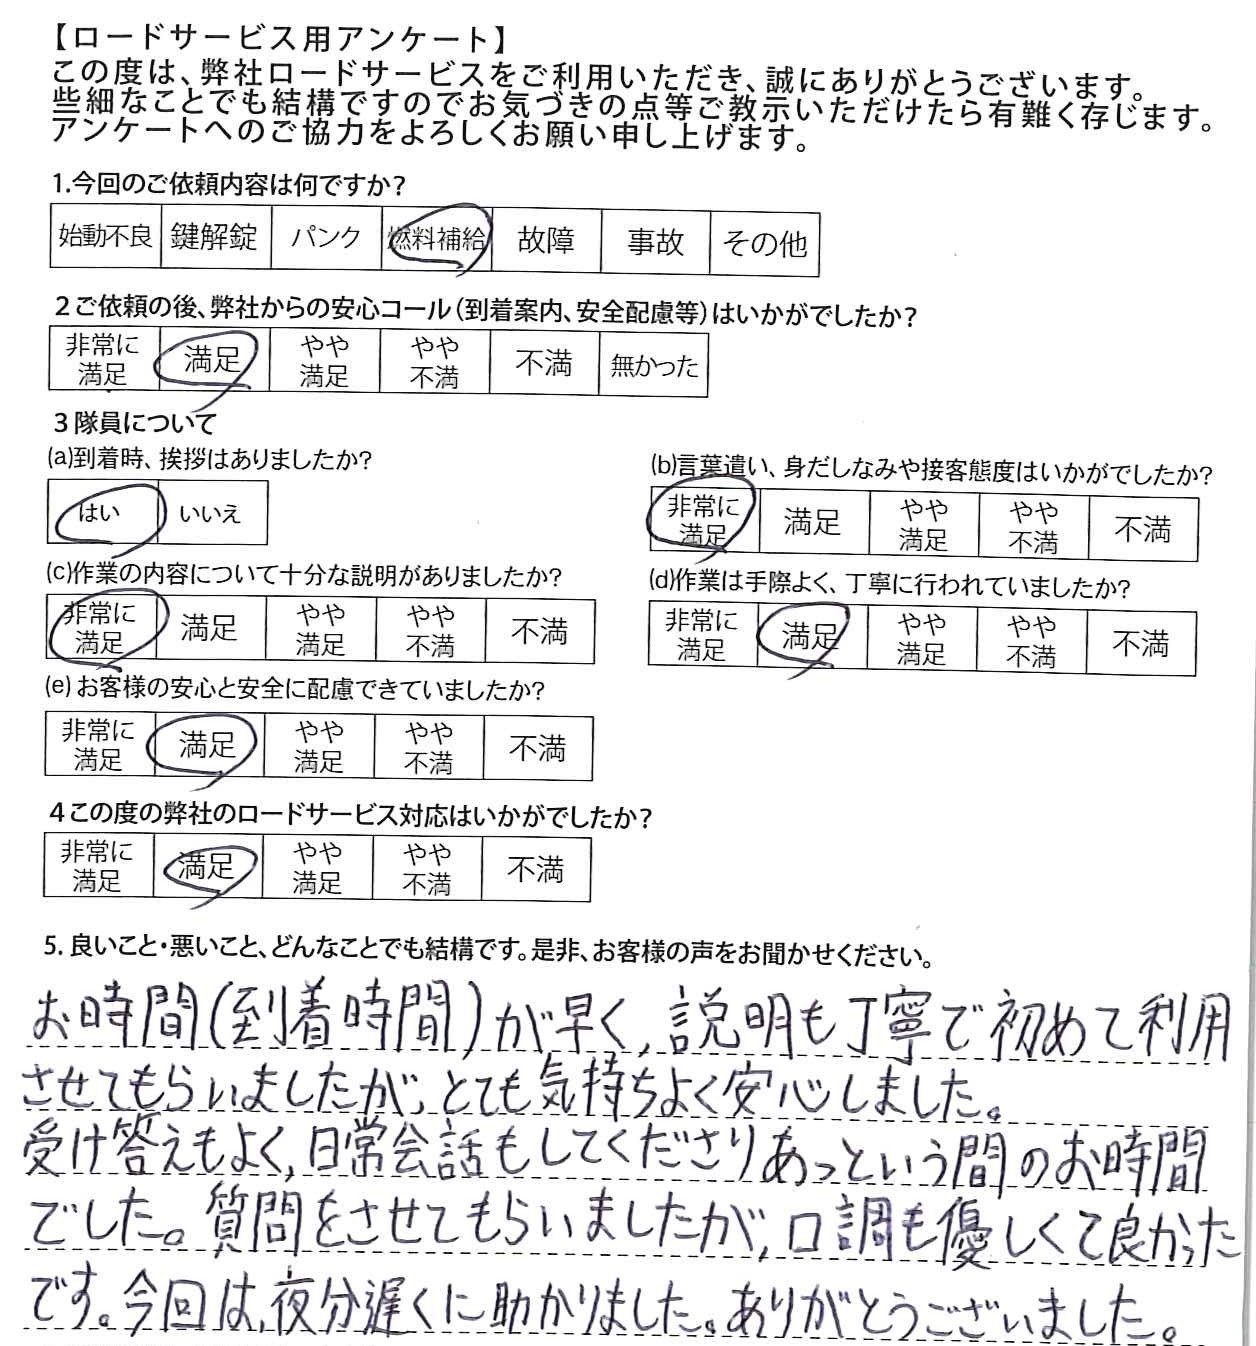 【ロードサービス用アンケート】
この度は、弊社ロードサービスをご利用いただき、誠にありがとうございます。
些細なことでも結構ですのでお気づきの点等ご教示いただけたら有難く存じます。
アンケートへのご協力をよろしくお願い申し上げます。
1.今回のご依頼内容は何ですか?
始動不良 鍵解錠 パンク 燃料補給 故障 事故 その他
2ご依頼の後、弊社からの安心コール(到着案内、安全配慮等)はいかがでしたか?
非常に満足 満足 やや満足 やや不満 不満 無かった
3隊員について
(a)到着時、挨拶はありましたか?
はい いいえ
(b)言葉遣い、身だしなみや接客態度はいかがでしたか?
非常に満足 満足 やや満足 やや不満 不満
(c)作業の内容について十分な説明がありましたか?
非常に満足 満足 やや満足 やや不満 不満
(d)作業は手際よく、丁寧に行われていましたか?
非常に満足 満足 やや満足 やや不満 不満
(e)お客様の安心と安全に配慮できていましたか?
非常に満足 満足 やや満足 やや不満 不満
4この度の弊社のロードサービス対応はいかがでしたか?
非常に満足 満足 やや満足 やや不満 不満
5.良いこと・悪いこと、どんなことでも結構です。是非、お客様の声をお聞かせください。
お時間(到着時間)が早く、説明も丁寧で初めて利用
させてもらいましたが、とても気持ちよく安心しました。
受け答えもよく、日常会話もしてくださりあっという間のお時間
でした。質問をさせてもらいましたが、口調も優しくて良かった
です。今回は、夜分遅くに助かりました。ありがとうございました。